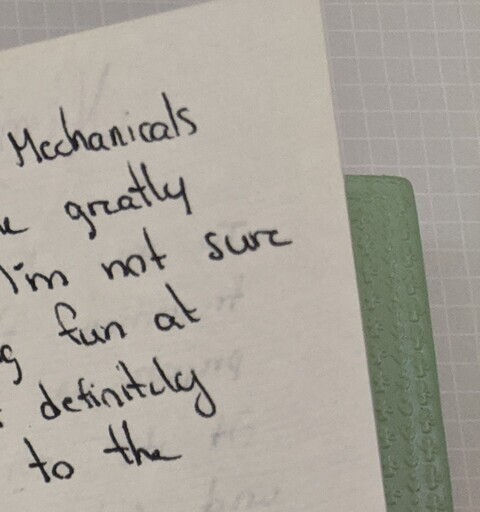 Mechanicals
greatly
I'm not sure
fun at
definitely
to the